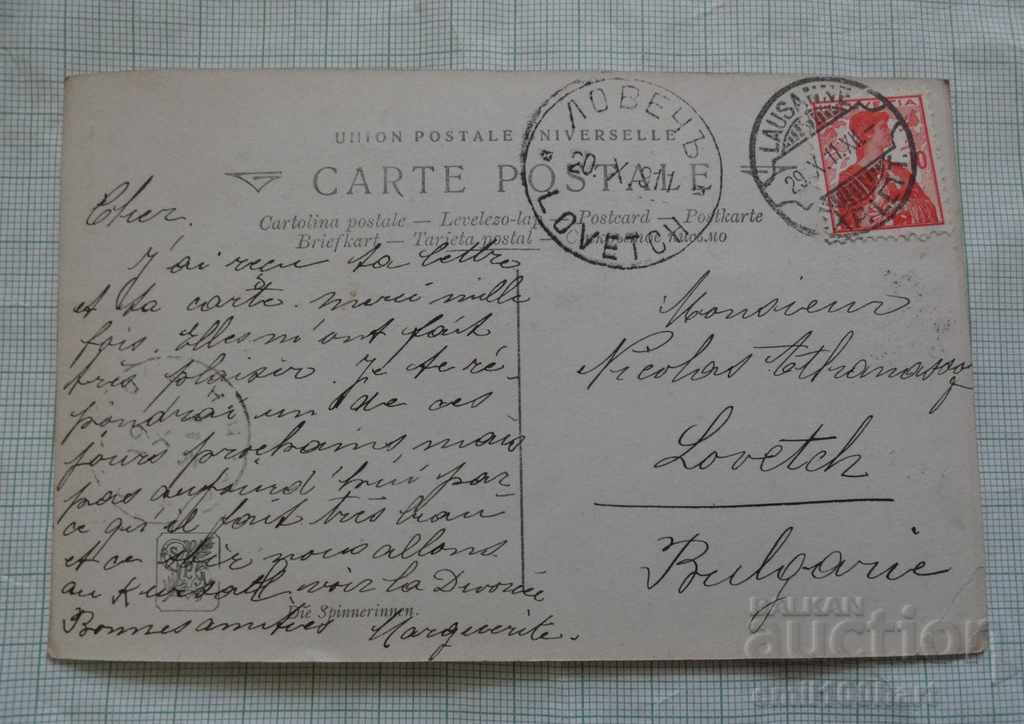 UNION POSTALE UNIVERSELLE
CARTE POSTALE
Cartolina postale — Levelezo-lap — Postcard — Postkarte
Briefkart — Tarjeta postal —
ЛОВЕЧЪ
20. X. 911
LOVETCH
LAUSANNE
29. X. 11. XII
HELVETIA
10
Cher.
J'ai reçu ta lettre
et ta carte. merci mille
fois. Elles m'ont fait
très plaisir. Je te ré-
pondrai un de ces
jours prochains, mais
pas aujourd'hui par
ce qu'il fait très beau
et ce soir nous allons
au Kursall voir la Divorcée
Bonnes amitiés Marguerite.
Die Spinnerinnen.
Monsieur
Nicolas Athanasoff
Lovetch
Bulgarie
BALKAN
auction
emil100hart